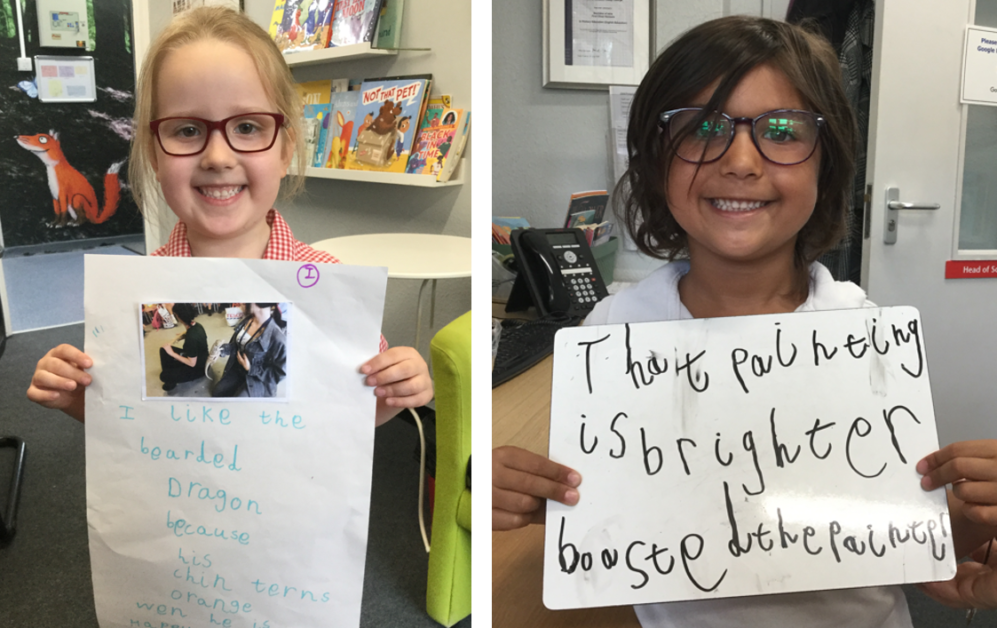 NOT THAT PET!
I
I like the
bearded
Dragon
because
his
chin terns
orange
wen he is
Happy
Please
Google
Head of Sc
That painting
is brighter
boasted the painter